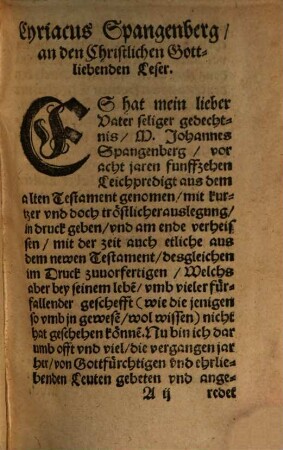 Cyriacus Spangenberg /
an den Christlichen Gott-
liebenden Leser.
ES hat mein lieber
Vater seliger gedecht-
nis / M. Johannes
Spangenberg / vor
acht jaren funffzehen
Leichpredigt aus dem
alten Testament genomen / mit kur-
tzer vnd doch tröstlicher auslegung /
in druck geben / vnd am ende verheis-
sen / mit der zeit auch etliche aus
dem newen Testament / desgleichen
im Druck zuuorfertigen / Welchs
aber bey seinem lebē / vmb vieler für-
fallender geschefft (wie die jenigen
so vmb in gewesē / wol wissen) nicht
hat geschehen könnē. Nu bin ich dar
umb offt vnd viel / die vergangen jar
her / von Gottfürchtigen vnd ehrlie-
benden Leuten gebeten vnd ange-
A ij redet